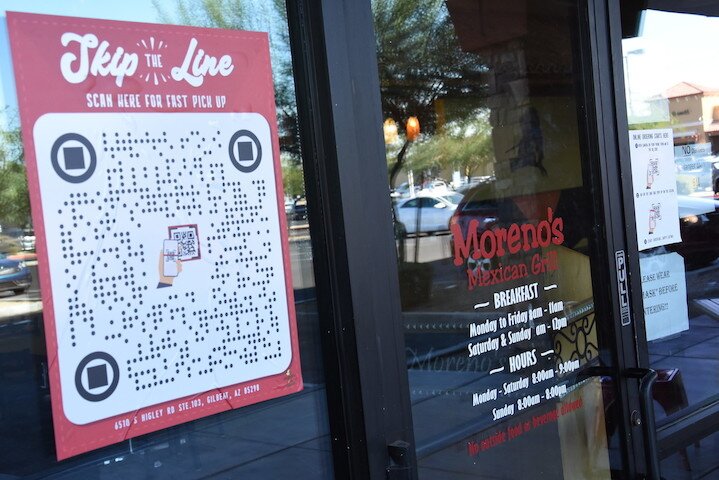 Skip THE Line
SCAN HERE FOR FAST PICK UP
6518 S HIGLEY RD STE.103, GILBERT, AZ 85298
Moreno's
Mexican Grill
BREAKFAST
Monday to Friday 8am - 11am
Saturday & Sunday am - 12pm
HOURS
Monday - Saturday 8:00am - 9:00pm
Sunday 8:00am - 8:00pm
No outside food or beverage allowed
PULL
ONLINE ORDERING STARTS HERE
NO
PLEASE WEAR
MASK" BEFORE
ENTERING!!